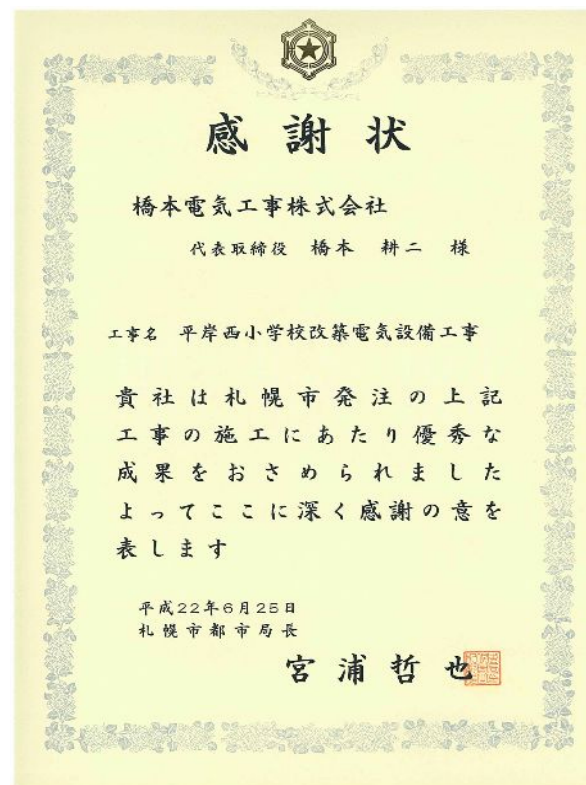 感謝状
橋本電気工事株式会社
代表取締役 橋本 耕二 様
工事名 平岸西小学校改築電気設備工事
貴社は札幌市発注の上記
工事の施工にあたり優秀な
成果をおさめられました
よってここに深く感謝の意を
表します
平成22年6月25日
札幌市都市局長
宮浦哲也